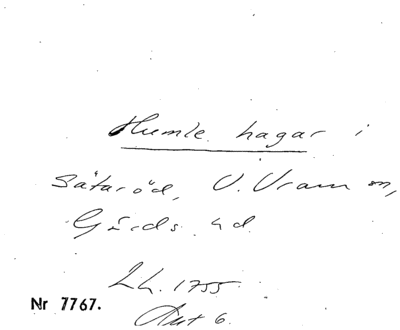 Humle hagar i
Sätaröd, V. Vram sn,
Gärds hd.
Lh. 1755
Akt 6.
Nr 7767.